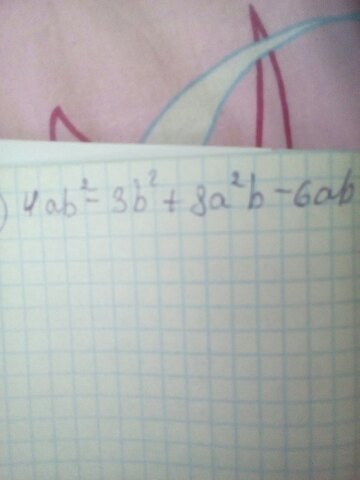 ) 4ab² - 3b² + 8a²b - 6ab